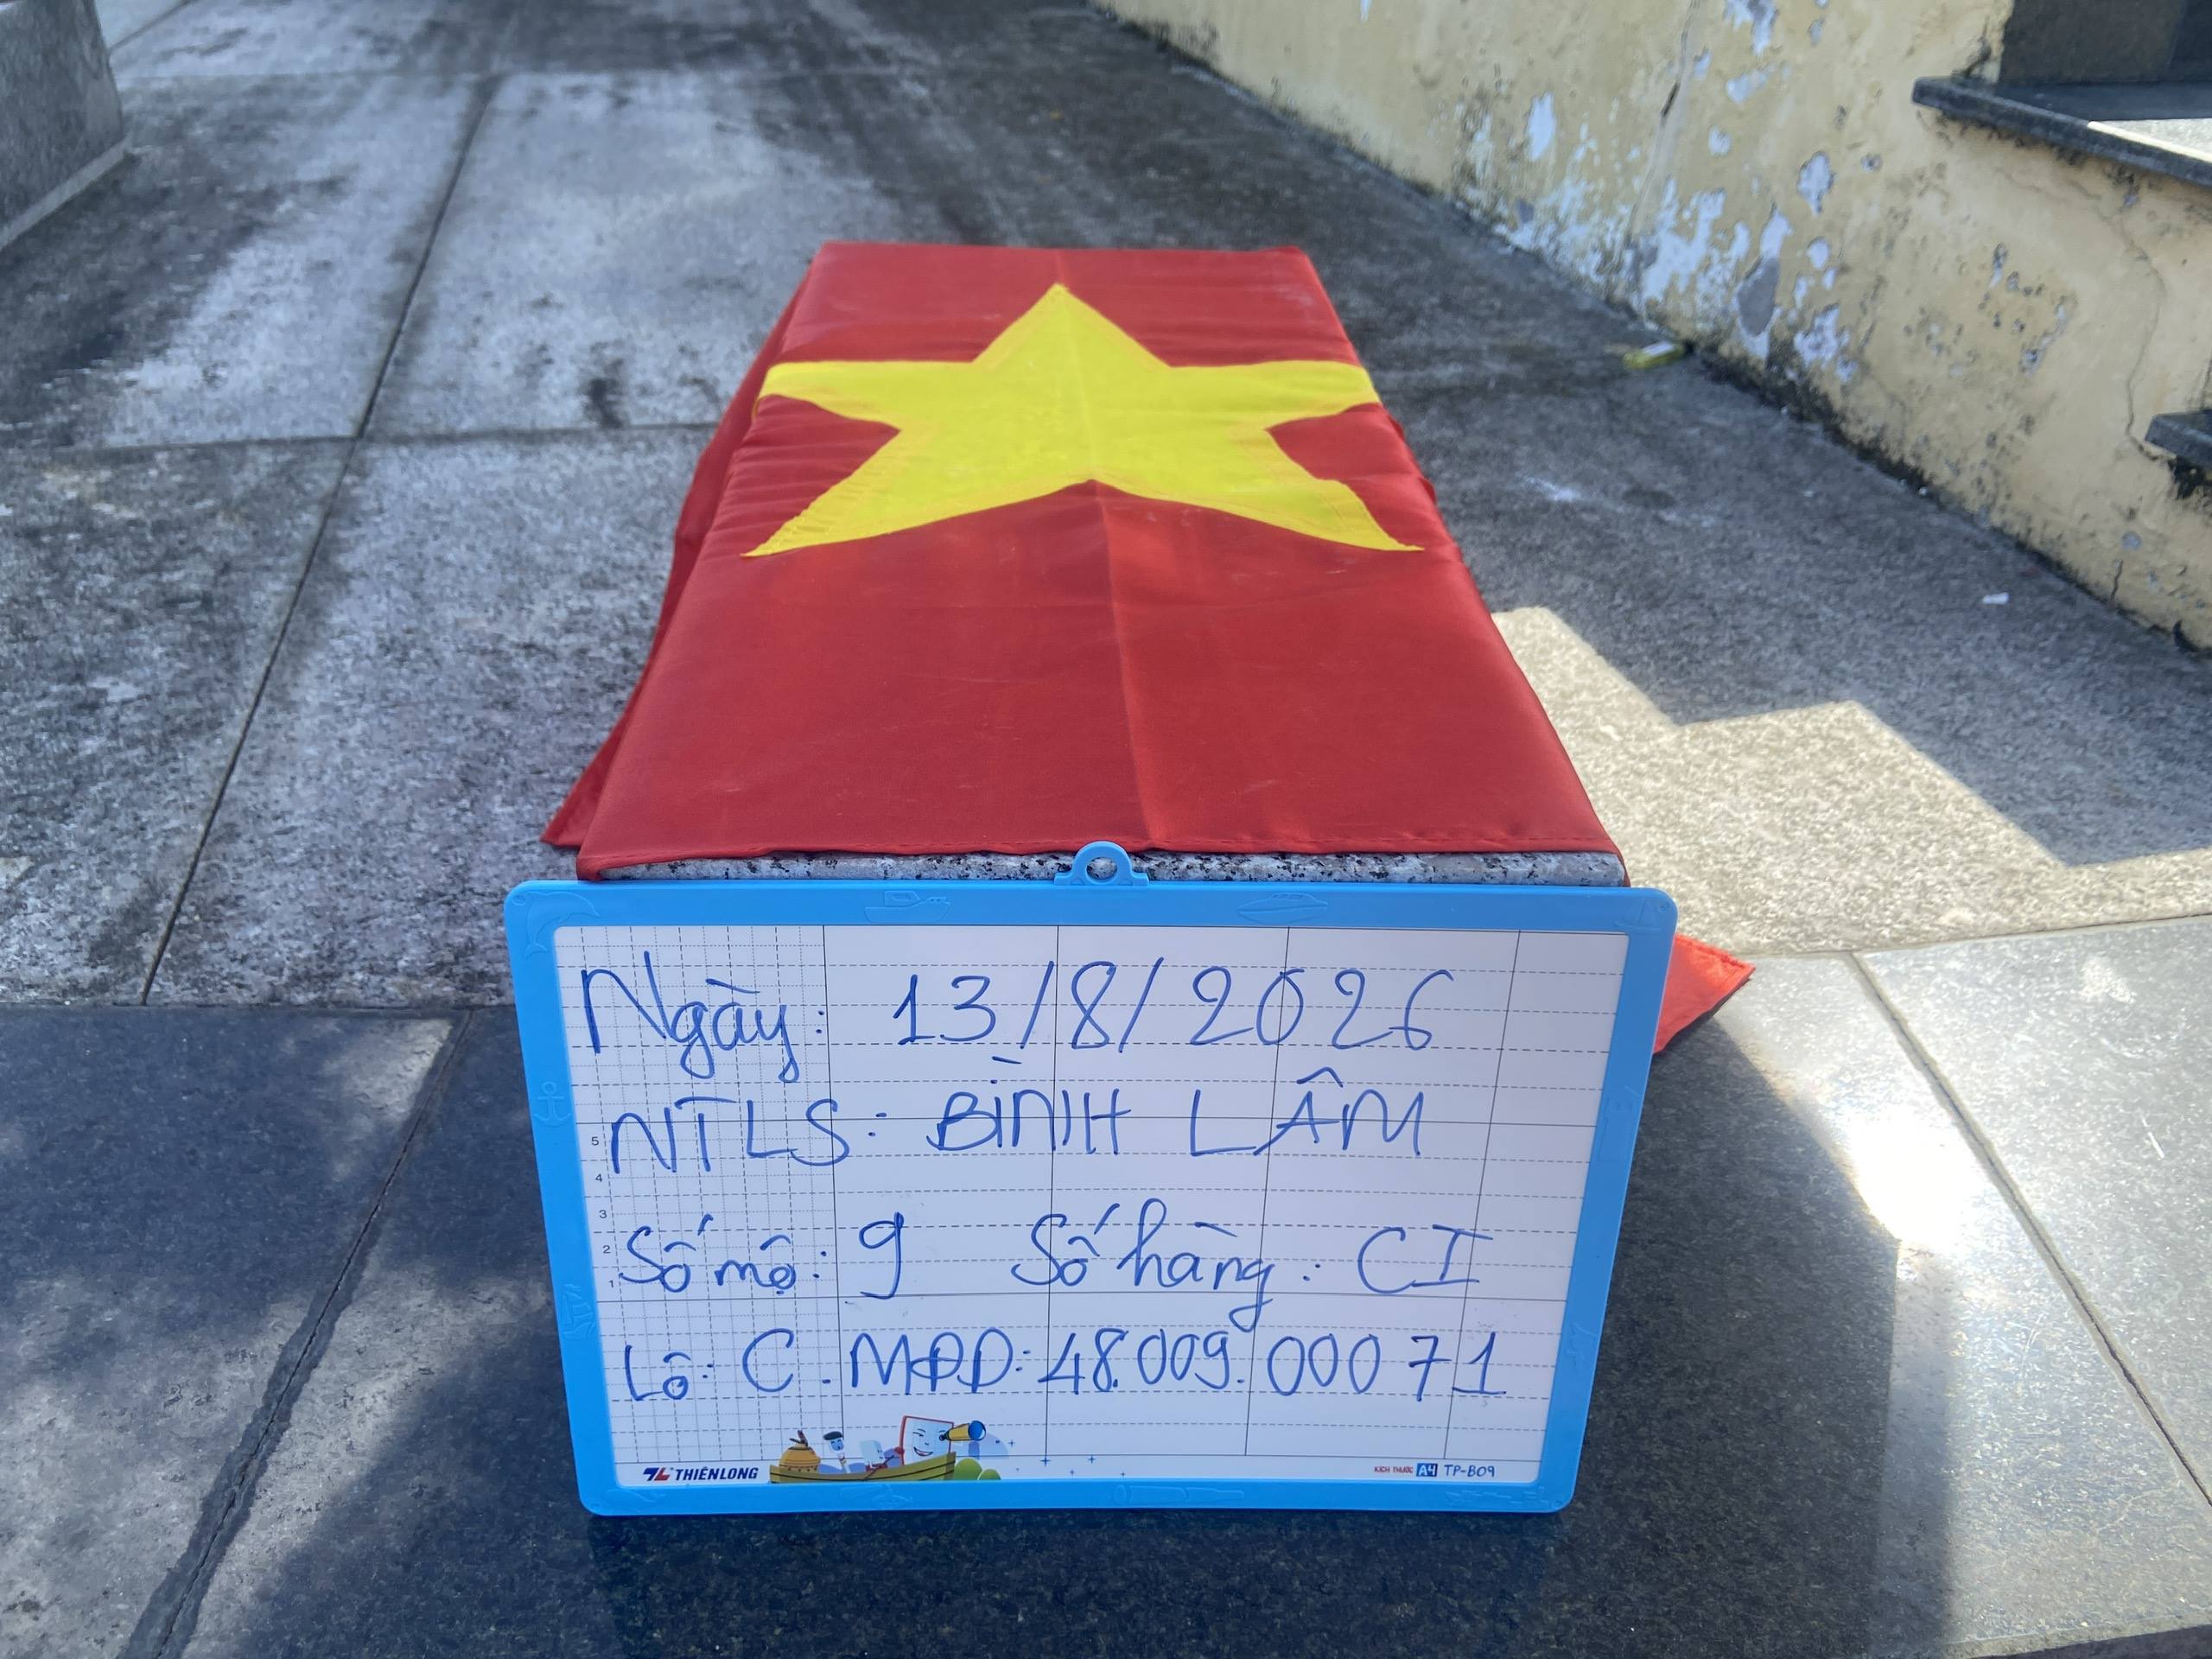 Ngày: 13/8/2026
NTLS: BÌNH LÂM
Số mộ: 9 Số hàng: CI
Lô: C. MĐD: 48.009.00071
5
4
3
2
1
THIÊN LONG
KÍCH THƯỚC A4 TP-B09